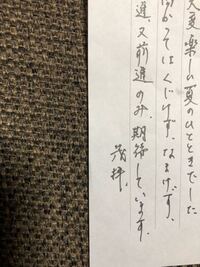 大変楽しい夏のひとときでした
向かってはくじけず、なまけず、
進、又前進のみ、期待しています。
拝